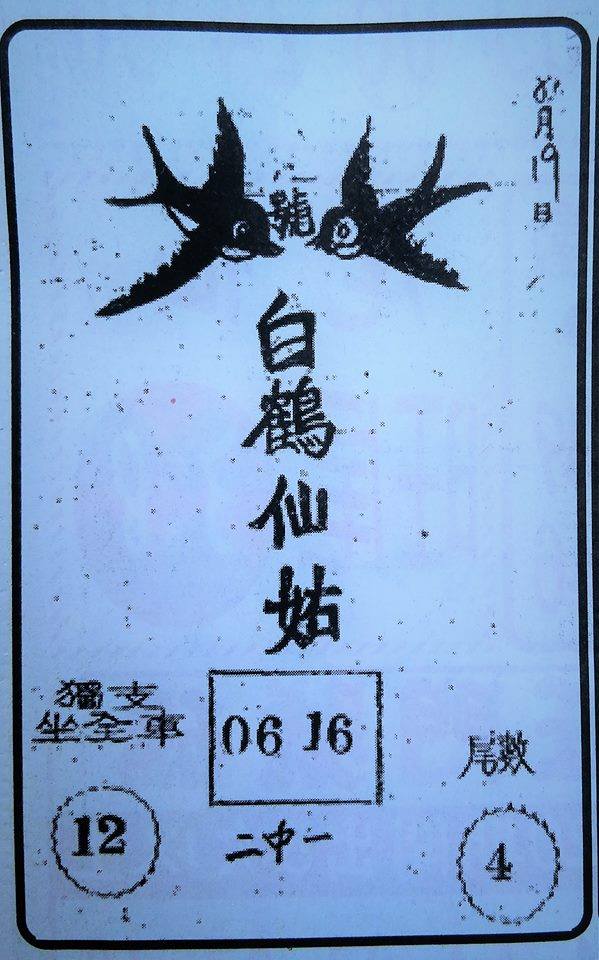 月19日
龍
白鶴仙姑
獨支
坐全車
12
06 16
二中一
尾數
4